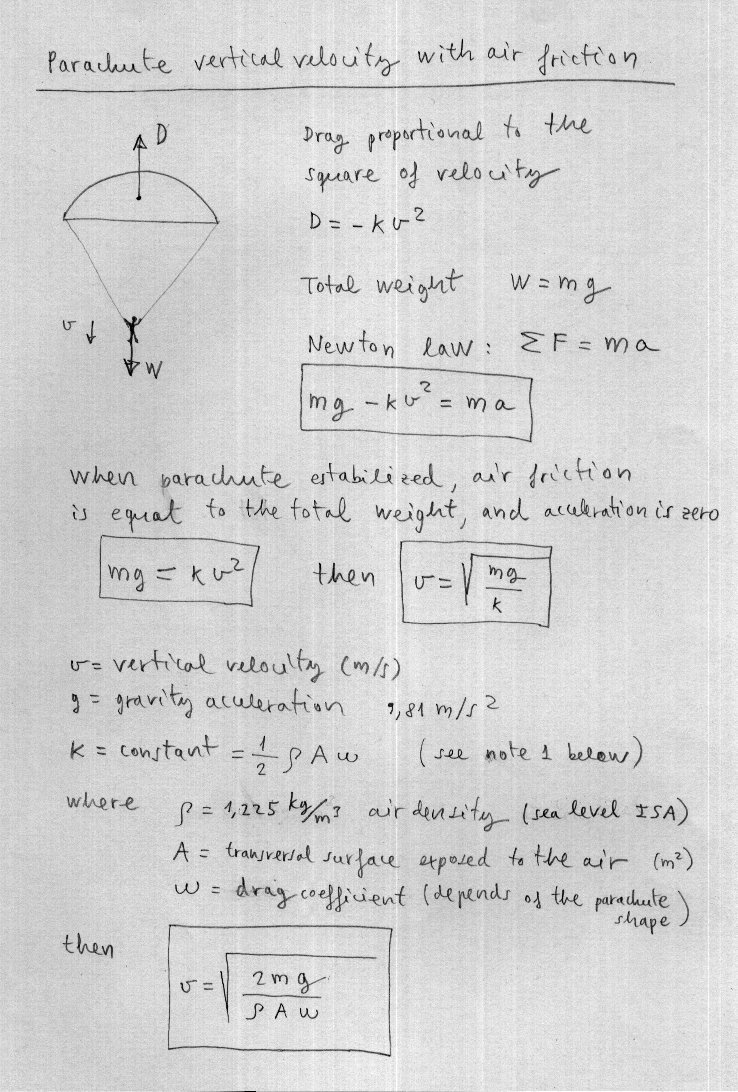 Parachute vertical velocity with air friction
D
Drag proportional to the
square of velocity
D = - k v²
Total weight W = mg
v ↓
W
Newton law : ΣF = ma
mg - kv² = ma
when parachute estabilized, air friction
is equal to the total weight, and acceleration is zero
mg = kv² then v = √(mg/k)
v = vertical velocity (m/s)
g = gravity aculeration 9,81 m/s²
K = constant = 1/2 ρ A w (see note 1 below)
where ρ = 1,225 kg/m³ air density (sea level ISA)
A = transversal surface exposed to the air (m²)
w = drag coefficient (depends of the parachute
shape)
then
v = √(2mg/ρAw)